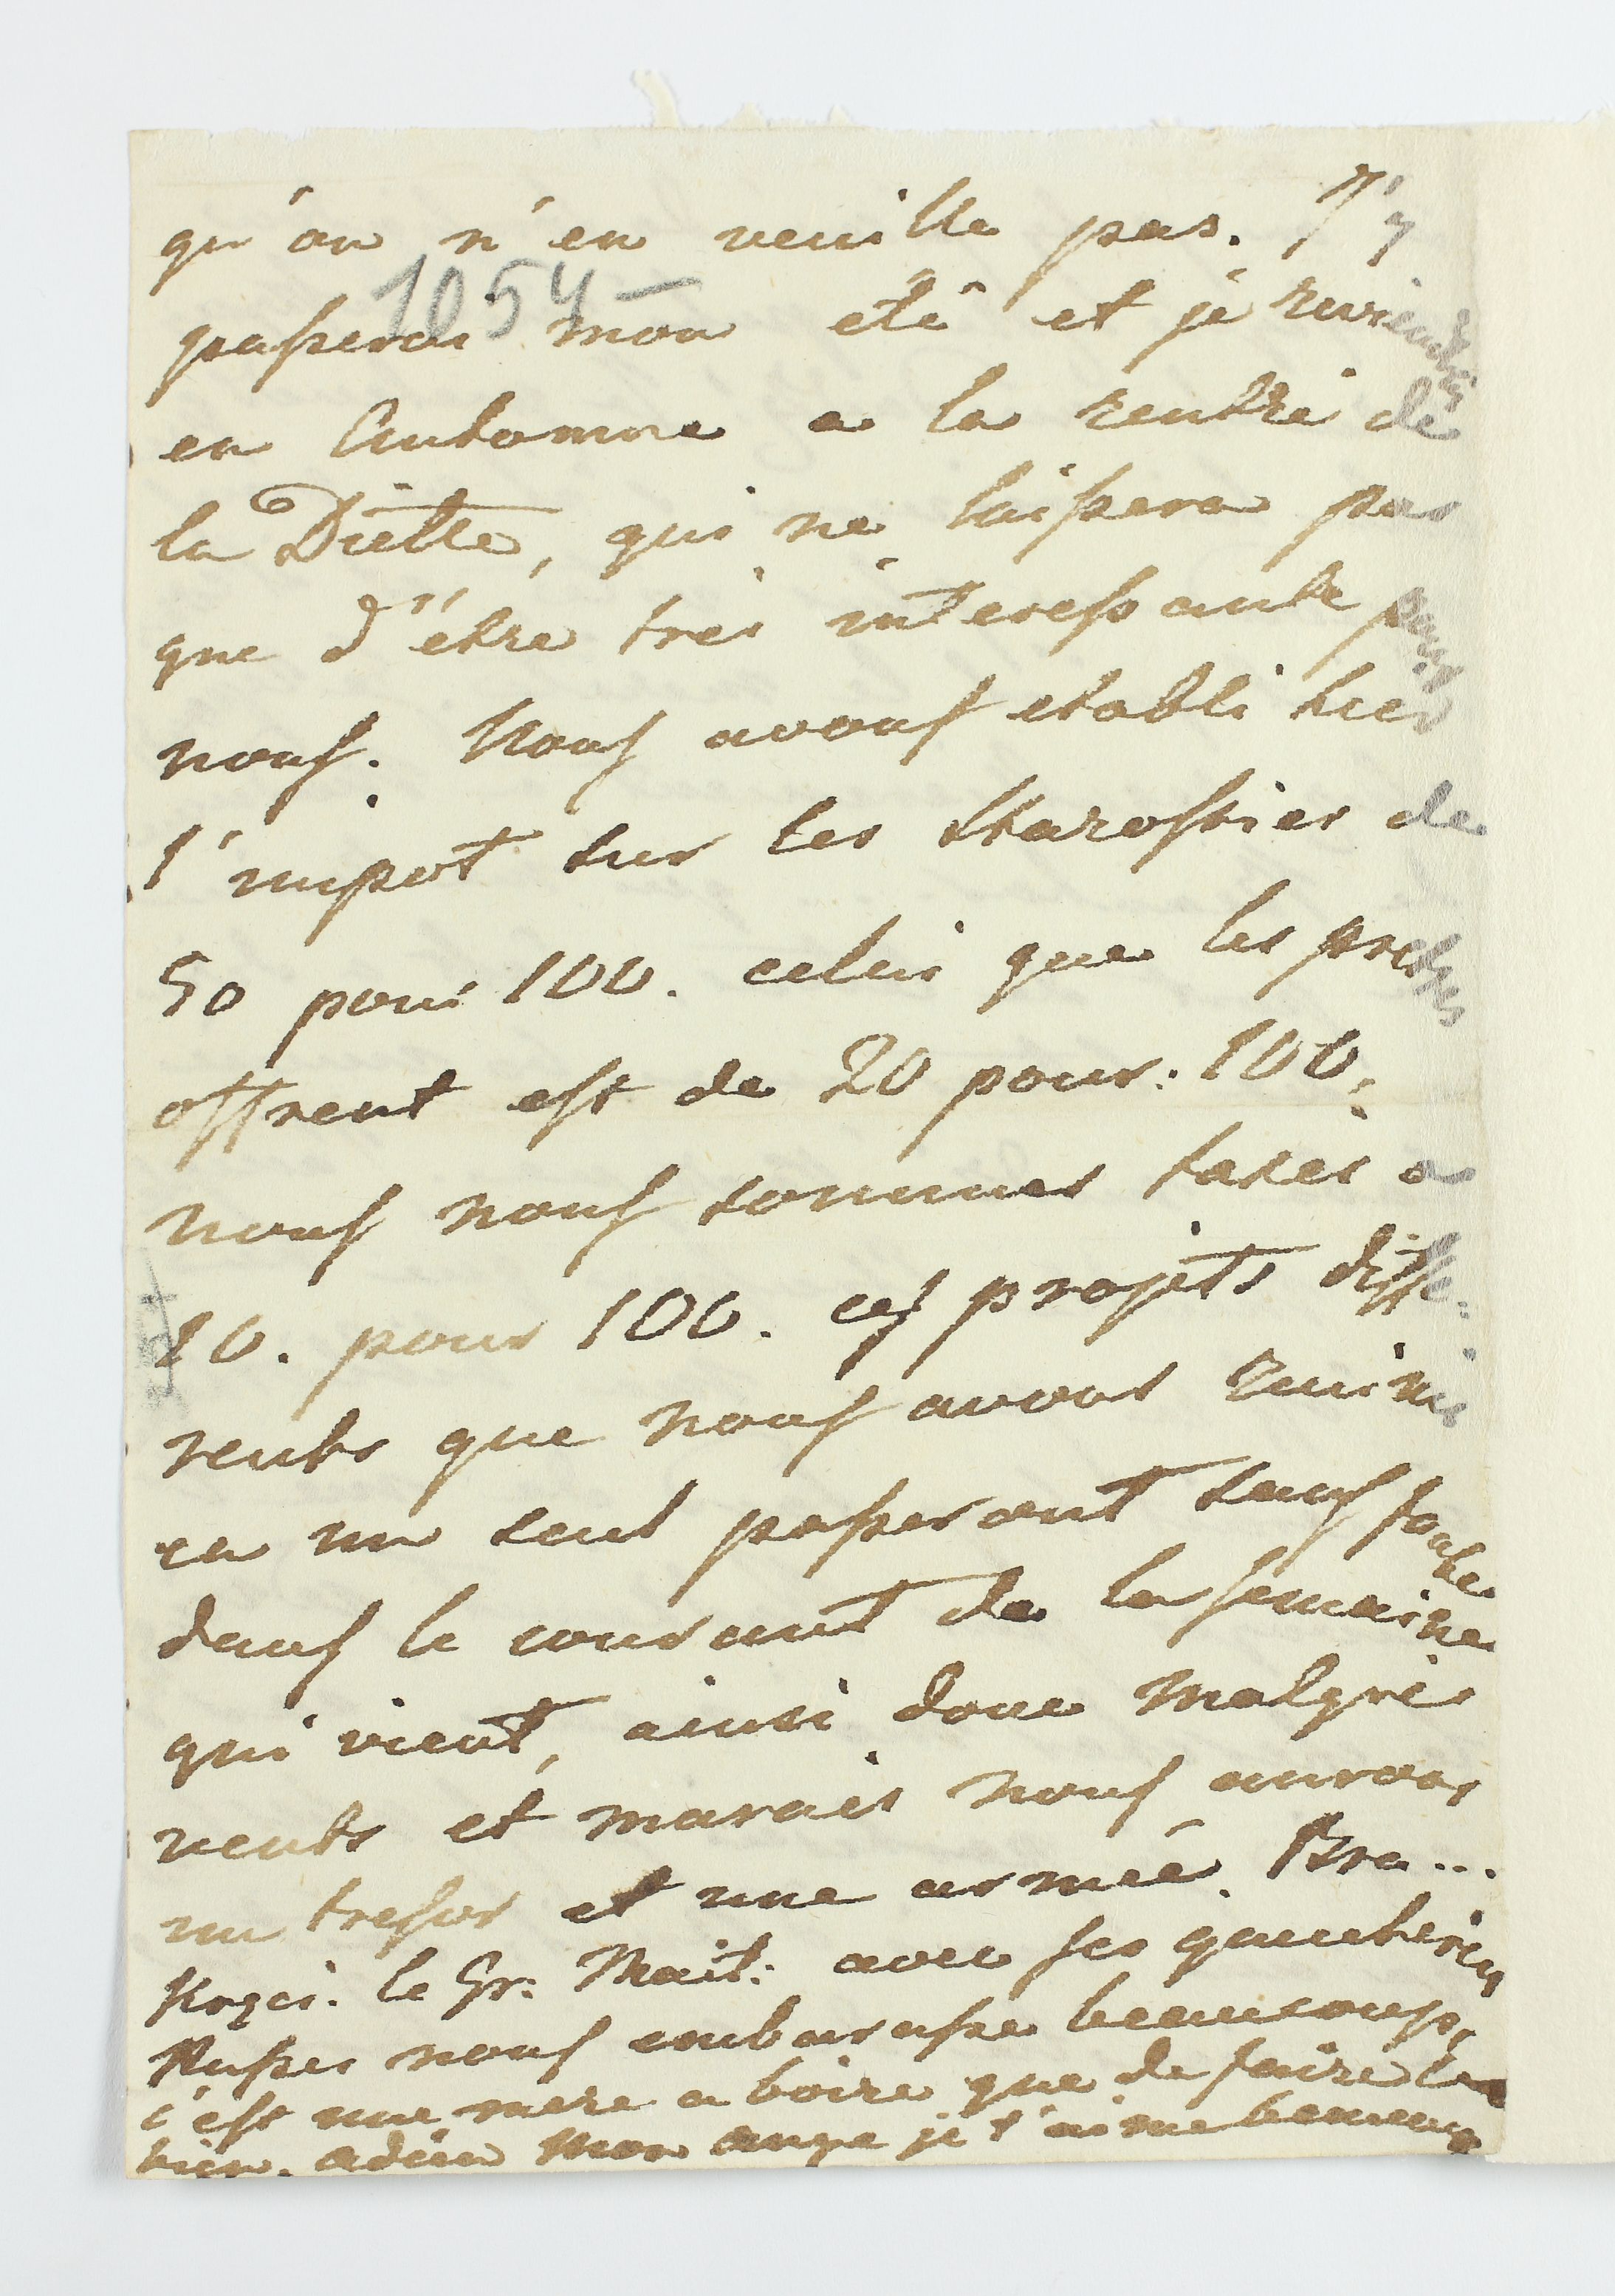 qu'on n'en veuille pas. J'y
1054 –
passerai mon eté et je reviendrai
en Automne a la rentré de
la Diette, qui ne laissera pas
que d'être tres interessante pour
nous. Nous avons etabli hier
l'impot sur les Starosties de
50 pour 100. celui que les pretres
offrent est de 20 pour: 100,
nous nous sommes taxés a
10. pour 100. ces projets diffe-
rents que nous avons reunis
en un seul passeront sans faute
dans le courant de la semaine
qui vient, ainsi donc malgrés
vents et marais nous aurons
un tresor et une armée. Bra...
le Gr: Mait: avec ses
Russes nous embarasse beaucoup,
c'est une mere a boire que de faire le
bien. adieu Mon ange je t'aime beaucoup